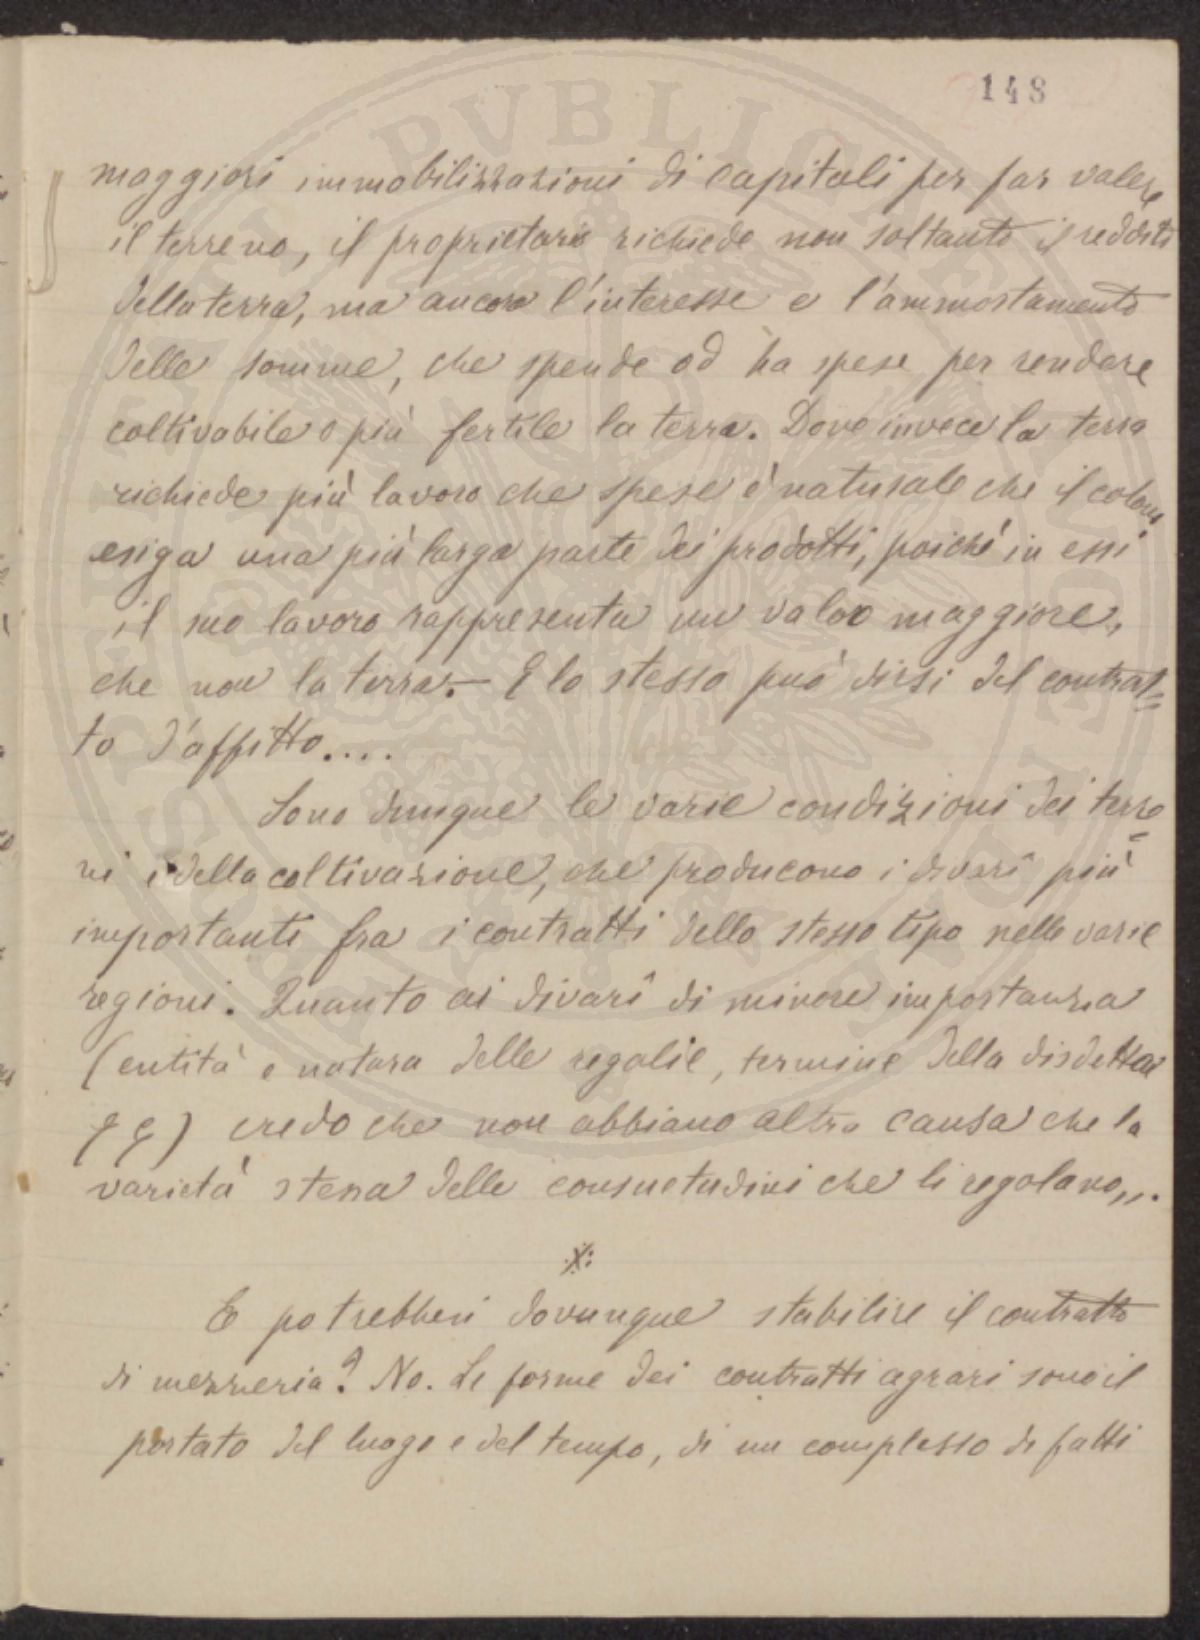 148
maggiori immobilizzazioni di capitali per far valere
il terreno, il proprietario richiede non soltanto il reddito
della terra, ma ancora l'interesse e l'ammortamento
delle somme, che spende od ha spese per rendere
coltivabile o più fertile la terra. Dove invece la terra
richiede più lavoro che spese è naturale che il colono
esiga una più larga parte dei prodotti, poiché in essi
il suo lavoro rappresenta un valore maggiore,
che non la terra. — E lo stesso può dirsi del contrat=
to d'affitto....
Sono dunque le varie condizioni dei terre=
ni e della coltivazione, che producono i divarî più
importanti fra i contratti dello stesso tipo nelle varie
regioni. Quanto ai divarî di minore importanza
(entità e natura delle regalie, termine della disdetta
) credo che non abbiano altra causa che la
varietà stessa delle consuetudini che li regolano„.
E potrebbesi dovunque stabilire il contratto
di mezzeria? No. Le forme dei contratti agrari sono il
portato del luogo e del tempo, di un complesso di fatti